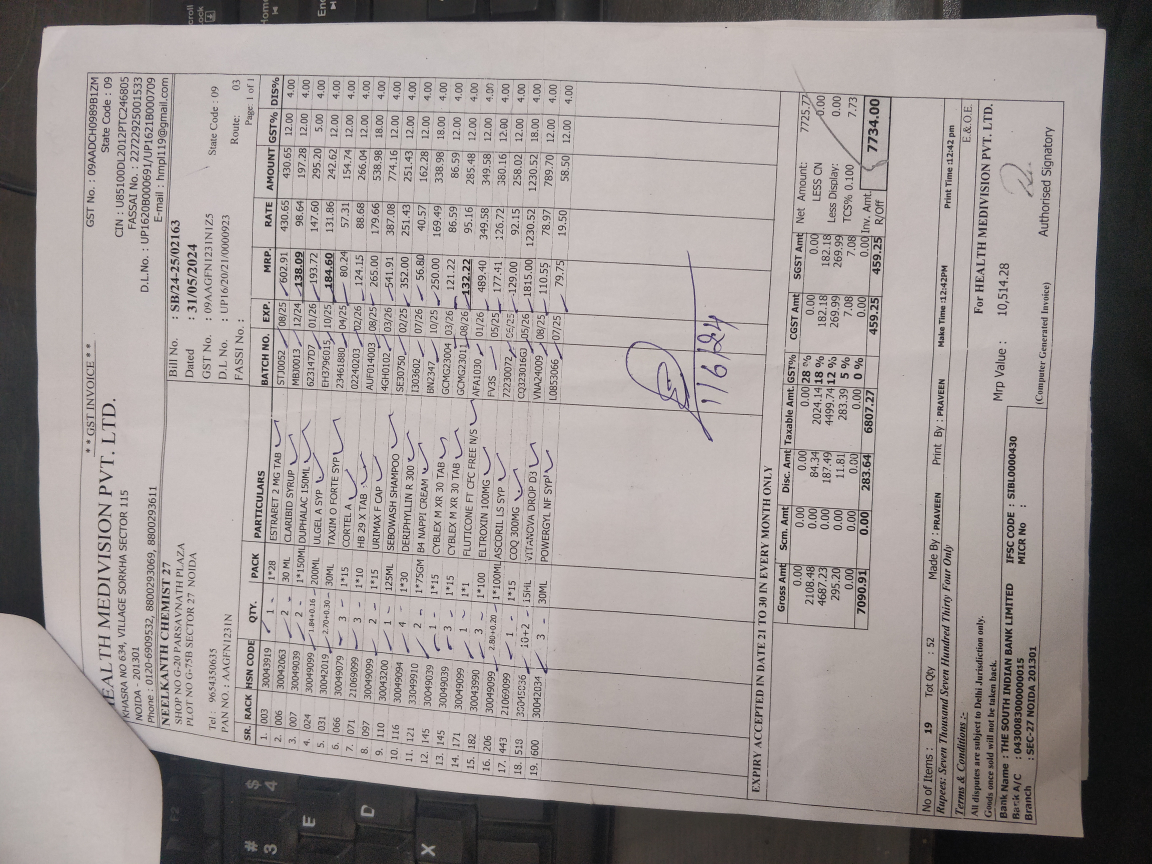 ** GST INVOICE **
HEALTH MEDIVISION PVT. LTD.
KHASRA NO 634, VILLAGE SORKHA SECTOR 115
NOIDA - 201301
Phone : 0120-6909532, 8800293069, 8800293611
GST No. : 09AADCH0989B1ZM
State Code : 09
CIN : U85100DL2012PTC246805
FASSAI No. : 22722925001533
D.L.No. : UP1620B000691/UP1621B000709
E-mail : hmpl119@gmail.com
NEELKANTH CHEMIST 27
SHOP NO G-20 PARSAVNATH PLAZA
PLOT NO G-75B SECTOR 27 NOIDA
Tel : 9654350635
PAN NO. : AAGFN1231N
Bill No. : SB/24-25/02163
Dated : 31/05/2024
GST No. : 09AAGFN1231N1Z5 State Code : 09
D.L No. : UP16/20/21/0000923
FASSI No : Route: 03
Page 1 of 1
SR. RACK HSN CODE QTY. PACK PARTICULARS BATCH NO. EXP. MRP. RATE AMOUNT GST% DIS%
1. 003 30043919 1 - 1*28 ESTRABET 2 MG TAB STJ0052 08/25 602.91 430.65 430.65 12.00 4.00
2. 006 30042063 2 - 30 ML CLARIBID SYRUP MBJ0013 12/24 138.09 98.64 197.28 12.00 4.00
3. 007 30049039 2 - 1*150ML DUPHALAC 150ML 623147D7 01/26 193.72 147.60 295.20 5.00 4.00
4. 024 30049099 1.84+0.16 200ML ULGEL A SYP EH3796015 10/25 184.60 131.86 242.62 12.00 4.00
5. 031 30042019 2.70+0.30 - 30ML TAXIM O FORTE SYP 23461880 04/25 80.24 57.31 154.74 12.00 4.00
6. 066 30049079 3 - 1*15 CORTEL A 02240203 02/26 124.15 88.68 266.04 12.00 4.00
7. 071 21069099 3 - 1*10 HB 29 X TAB AUF014003 08/25 265.00 179.66 538.98 18.00 4.00
8. 097 30049099 2 - 1*15 URIMAX F CAP 4GH0102 03/26 541.91 387.08 774.16 12.00 4.00
9. 110 30043200 1 - 125ML SEBOWASH SHAMPOO SE30750 02/25 352.00 251.43 251.43 12.00 4.00
10. 116 30049094 4 - 1*30 DERIPHYLLIN R 300 I303602 07/26 56.80 40.57 162.28 12.00 4.00
11. 121 33049910 2 - 1*75GM B4 NAPPI CREAM BN2347 10/25 250.00 169.49 338.98 18.00 4.00
12. 145 30049039 1 - 1*15 CYBLEX M XR 30 TAB GCMG23004 03/26 121.22 86.59 86.59 12.00 4.00
13. 145 30049039 3 - 1*15 CYBLEX M XR 30 TAB GCMG23011 08/26 132.22 95.16 285.48 12.00 4.00
14. 171 30049099 1 - 1*1 FLUTICONE FT CFC FREE N/S AFA1030 01/26 489.40 349.58 349.58 12.00 4.00
15. 182 30043990 3 - 1*100 ELTROXIN 100MG FV3S 05/25 177.41 126.72 380.16 12.00 4.00
16. 206 30049099 2.80+0.20 - 1*100ML ASCORIL LS SYP 72230072 06/25 129.00 92.15 258.02 12.00 4.00
17. 443 21069099 1 - 1*15 COQ 300MG CQ323016GJ 05/26 1815.00 1230.52 1230.52 18.00 4.00
18. 518 30045036 10+2 - 15ML VITANOVA DROP D3 VNA24009 08/25 110.55 78.97 789.70 12.00 4.00
19. 600 30042034 3 - 30ML POWERGYL NF SYP L0853066 07/25 79.75 19.50 58.50 12.00 4.00
1/6/24
EXPIRY ACCEPTED IN DATE 21 TO 30 IN EVERY MONTH ONLY
Gross Amt Scm. Amt Disc. Amt Taxable Amt. GST% CGST Amt SGST Amt
0.00 0.00 0.00 0.00 28 % 0.00 0.00
2108.48 0.00 84.34 2024.14 18 % 182.18 182.18
4687.23 0.00 187.49 4499.74 12 % 269.99 269.99
295.20 0.00 11.81 283.39 5 % 7.08 7.08
0.00 0.00 0.00 0.00 0 % 0.00 0.00
7090.91 0.00 283.64 6807.27 459.25 459.25
Net Amount: 7725.77
LESS CN 0.00
Less Display: 0.00
TCS% 0.100 7.73
Inv. Amt. R/Off 7734.00
No of Items : 19 Tot Qty : 52 Made By : PRAVEEN Print By : PRAVEEN Make Time :12:42PM Print Time :12:42 pm
Rupees: Seven Thousand Seven Hundred Thirty Four Only
E.&O.E.
Terms & Conditions :-
All disputes are subject to Delhi Jurisdiction only.
Goods once sold will not be taken back.
Mrp Value : 10,514.28
For HEALTH MEDIVISION PVT. LTD.
Bank Name : THE SOUTH INDIAN BANK LIMITED IFSC CODE : SIBL0000430
Bank A/C : 0430083000000015 MICR No :
Branch : SEC-27 NOIDA 201301
(Computer Generated Invoice)
Authorised Signatory